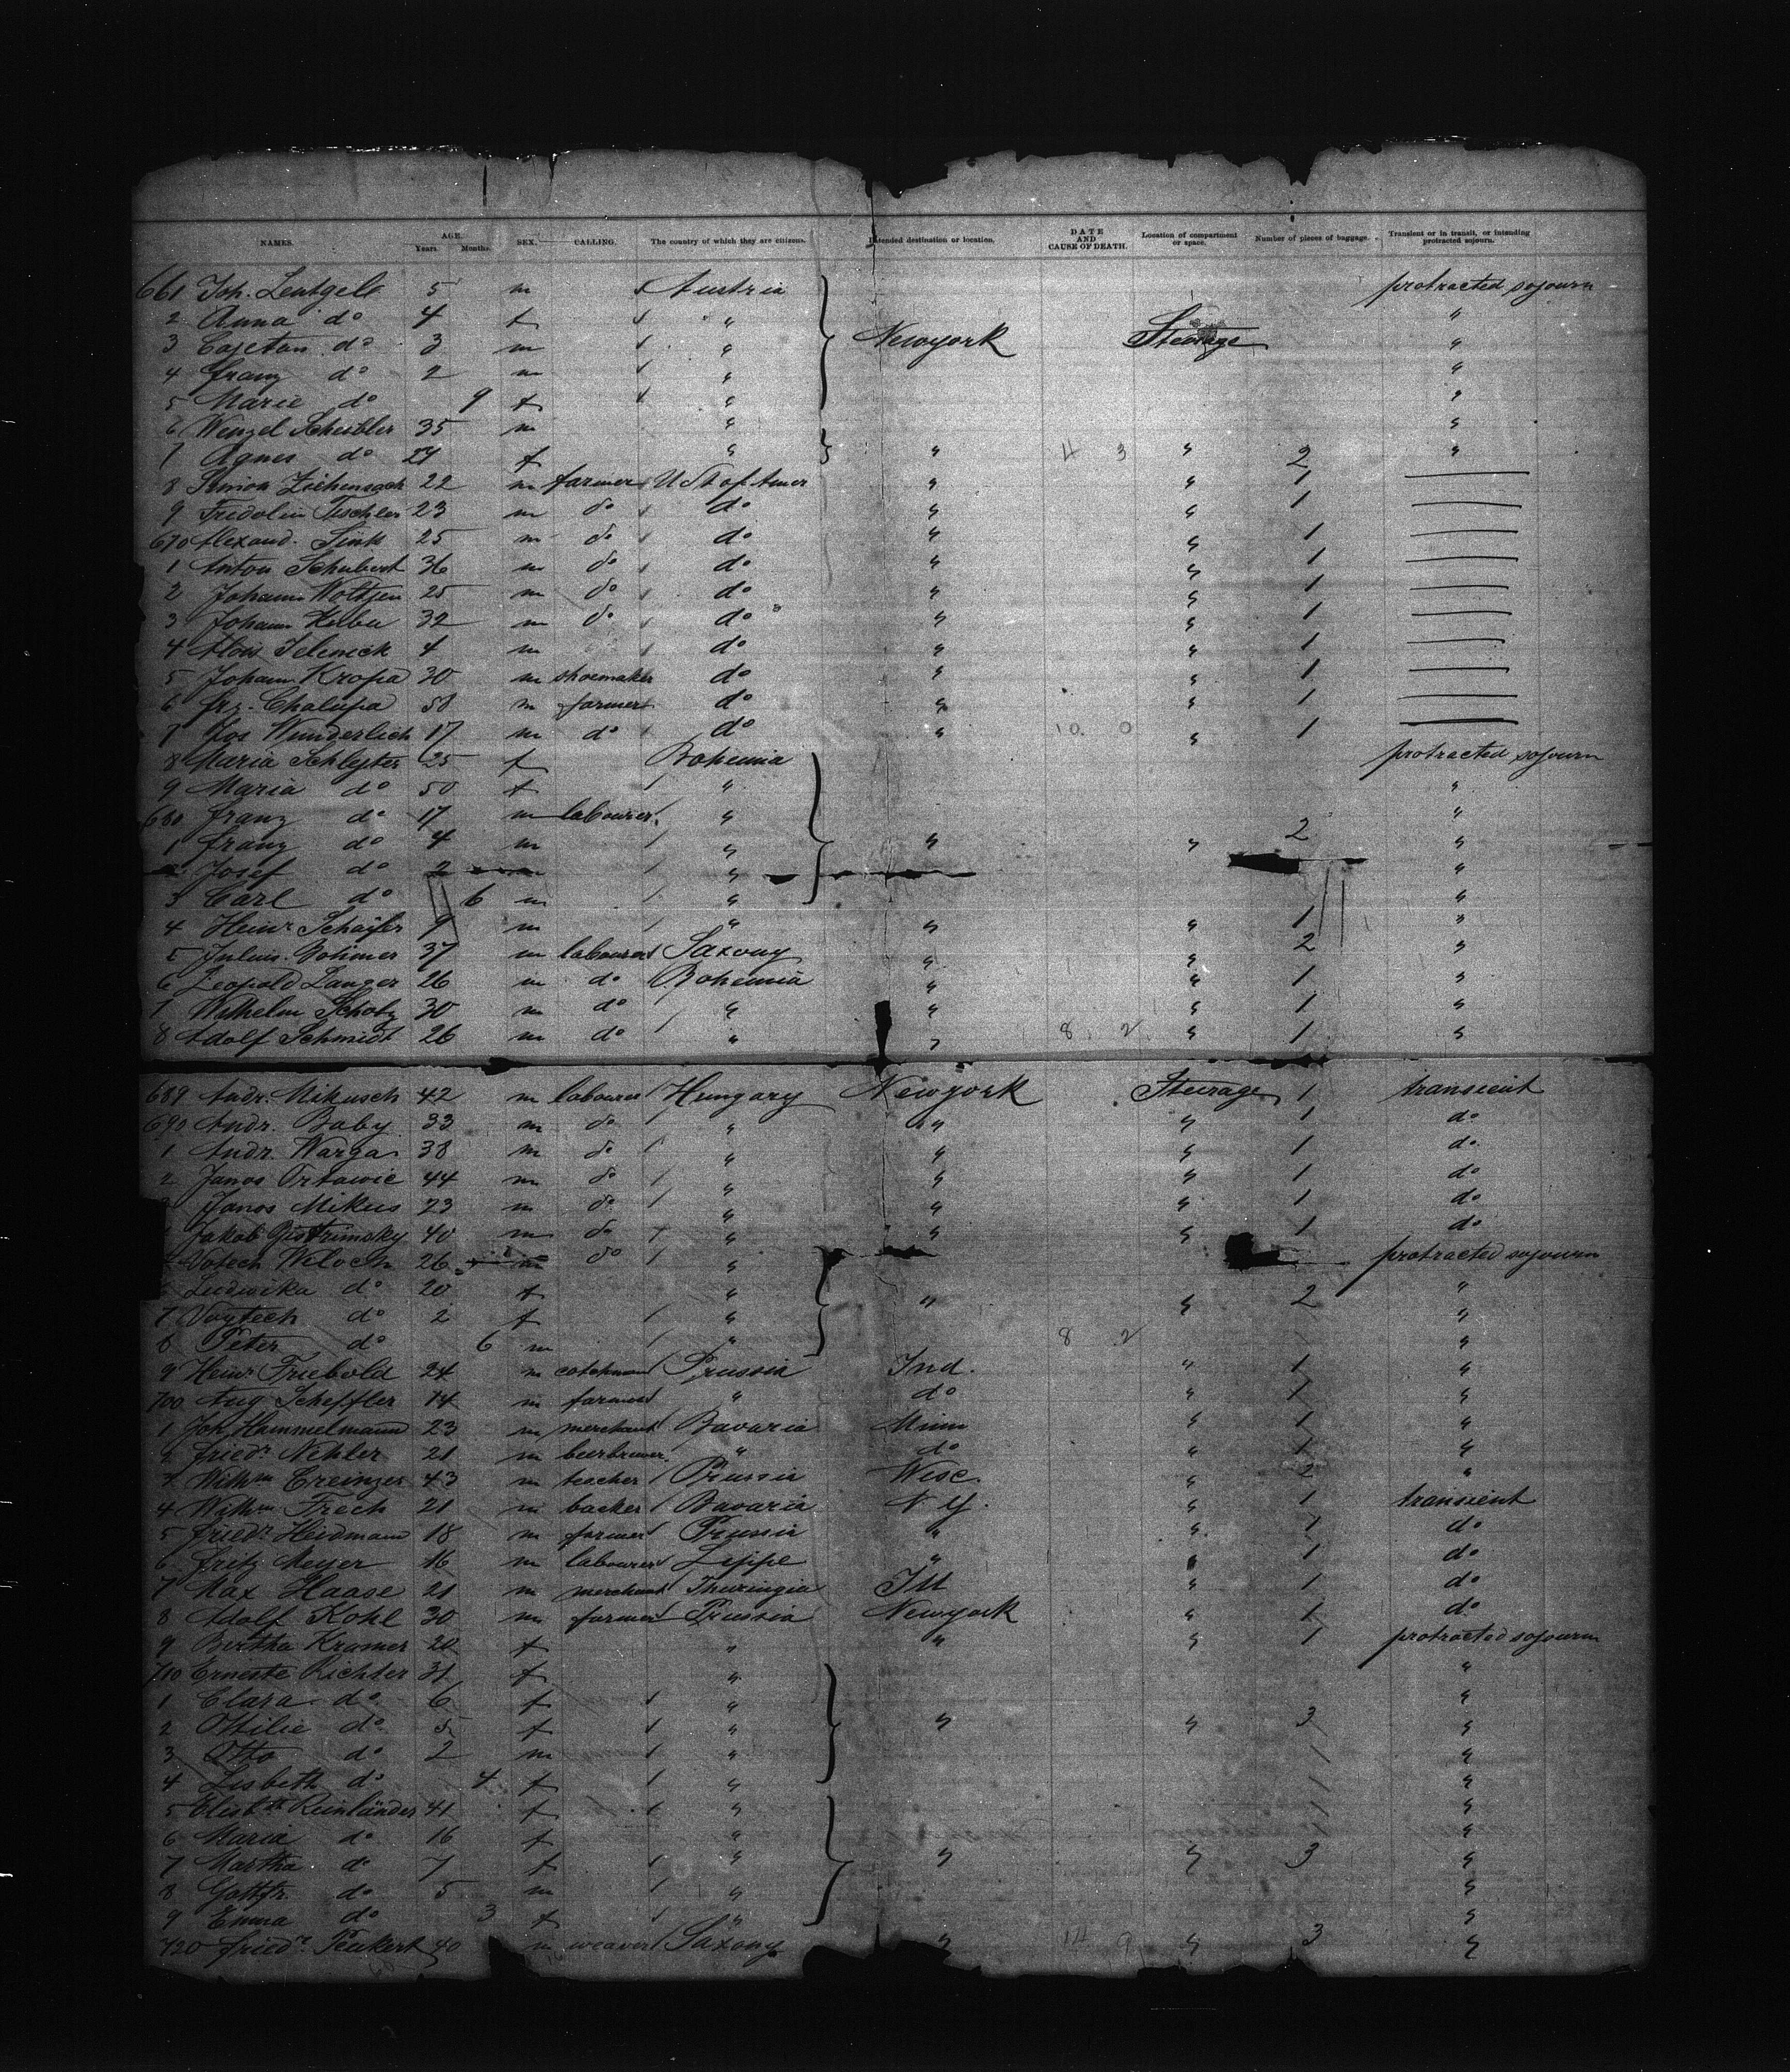 NAMES. AGE. Years. Months. SEX. CALLING. The country of which they are citizens. Intended destination or location. DATE AND CAUSE OF DEATH. Location of compartment or space. Number of pieces of baggage. Transient or in transit, or intending protracted sojourn.
661 Joh. 5 m Austria protracted sojourn
2 Anna do 4 f " "
3 Cajetan do 3 m " Newyork Steerage "
4 Franz do 2 m " "
5 Marie do 9 f " "
6 Wenzel Scheibler 35 m " "
7 Agnes do 27 f " " 4 3 " 2 "
8 Simon 22 m farmer U St of Amer " " 1 —
9 Fridolin Tischler 23 m do do " " 1 —
670 Alexand. Sink 25 m do do " " 1 —
1 Anton Schubert 36 m do do " " 1 —
2 Johann 25 m do do " " 1 —
3 Johann Kuba 32 m do do " " 1 —
4 Alois Jelineck 4 m do " " 1 —
5 Johann Kropa 30 m shoemaker do " " 1 —
6 Frz. Chalupa 58 m farmer do " " 1 —
7 Jos Wunderlich 17 m do do " 10 0 " 1 —
8 Maria 25 f Bohemia protracted sojourn
9 Maria do 50 f " "
680 Franz do 17 m labourer " "
1 Franz do 4 m " " " 2 "
2 Josef do 2 m " "
3 Carl do 6 m " "
4 Heinr. Schäfer 9 m " " " 1 "
5 Julius 37 m labourer Saxony " " 2 "
6 Leopold Langer 26 m do Bohemia " " 1 "
7 Wilhelm 30 m do " " " 1 "
8 Adolf Schmidt 26 m do " " 8 2 " 1 "
689 Andr. Mikusch 42 m labourer Hungary Newyork Steerage 1 transient
690 Andr. Baby 33 m do " " " 1 do
1 Andr. Warga 38 m do " " " 1 do
2 Janos 44 m do " " " 1 do
Janos Mikus 23 m do " " " 1 do
Jakob 40 m do " " " 1 do
Votech Wiloch 26 m do " protracted sojourn
6 Ludwika do 20 f " " " 2 "
7 Voytech do 2 f " "
8 Peter do 6 m " 8 2 "
9 Heinr. Friebold 24 m Prussia Ind. " 1 "
700 Aug Scheffler 14 m farmer " do " 1 "
1 Joh. Hummelmann 23 m merchant Bavaria Minn " 1 "
2 Friedr. Nehler 21 m beerbrewer " do " 1 "
3 Wilhm Creinzer 43 m teacher Prussia Wisc. " 2 "
4 Wilhm Frech 21 m backer Bavaria N Y. " 1 transient
5 Friedr. Heidmann 18 m farmer Prussia " " 1 do
6 Fritz Meyer 16 m labourer Lippe " " 1 do
7 Max Haase 21 m merchant Thuringia Ill " 1 do
8 Adolf Kohl 30 m farmer Prussia Newyork " 1 do
9 Bertha Kramer 20 f " " " 1 protracted sojourn
710 Erneste Richter 31 f " "
1 Clara do 6 f " "
2 Ottilie do 5 f " " " 3 "
3 Otto do 2 m " "
4 Lisbeth do 4 f " "
5 Elisbth Reinländer 41 f " "
6 Maria do 16 f " "
7 Martha do 7 f " " " 3 "
8 Gottfr. do 5 m " "
9 Emma do 3 f " "
720 Friedr. Peukert 40 m weaver Saxony " 14 9 " 3 "